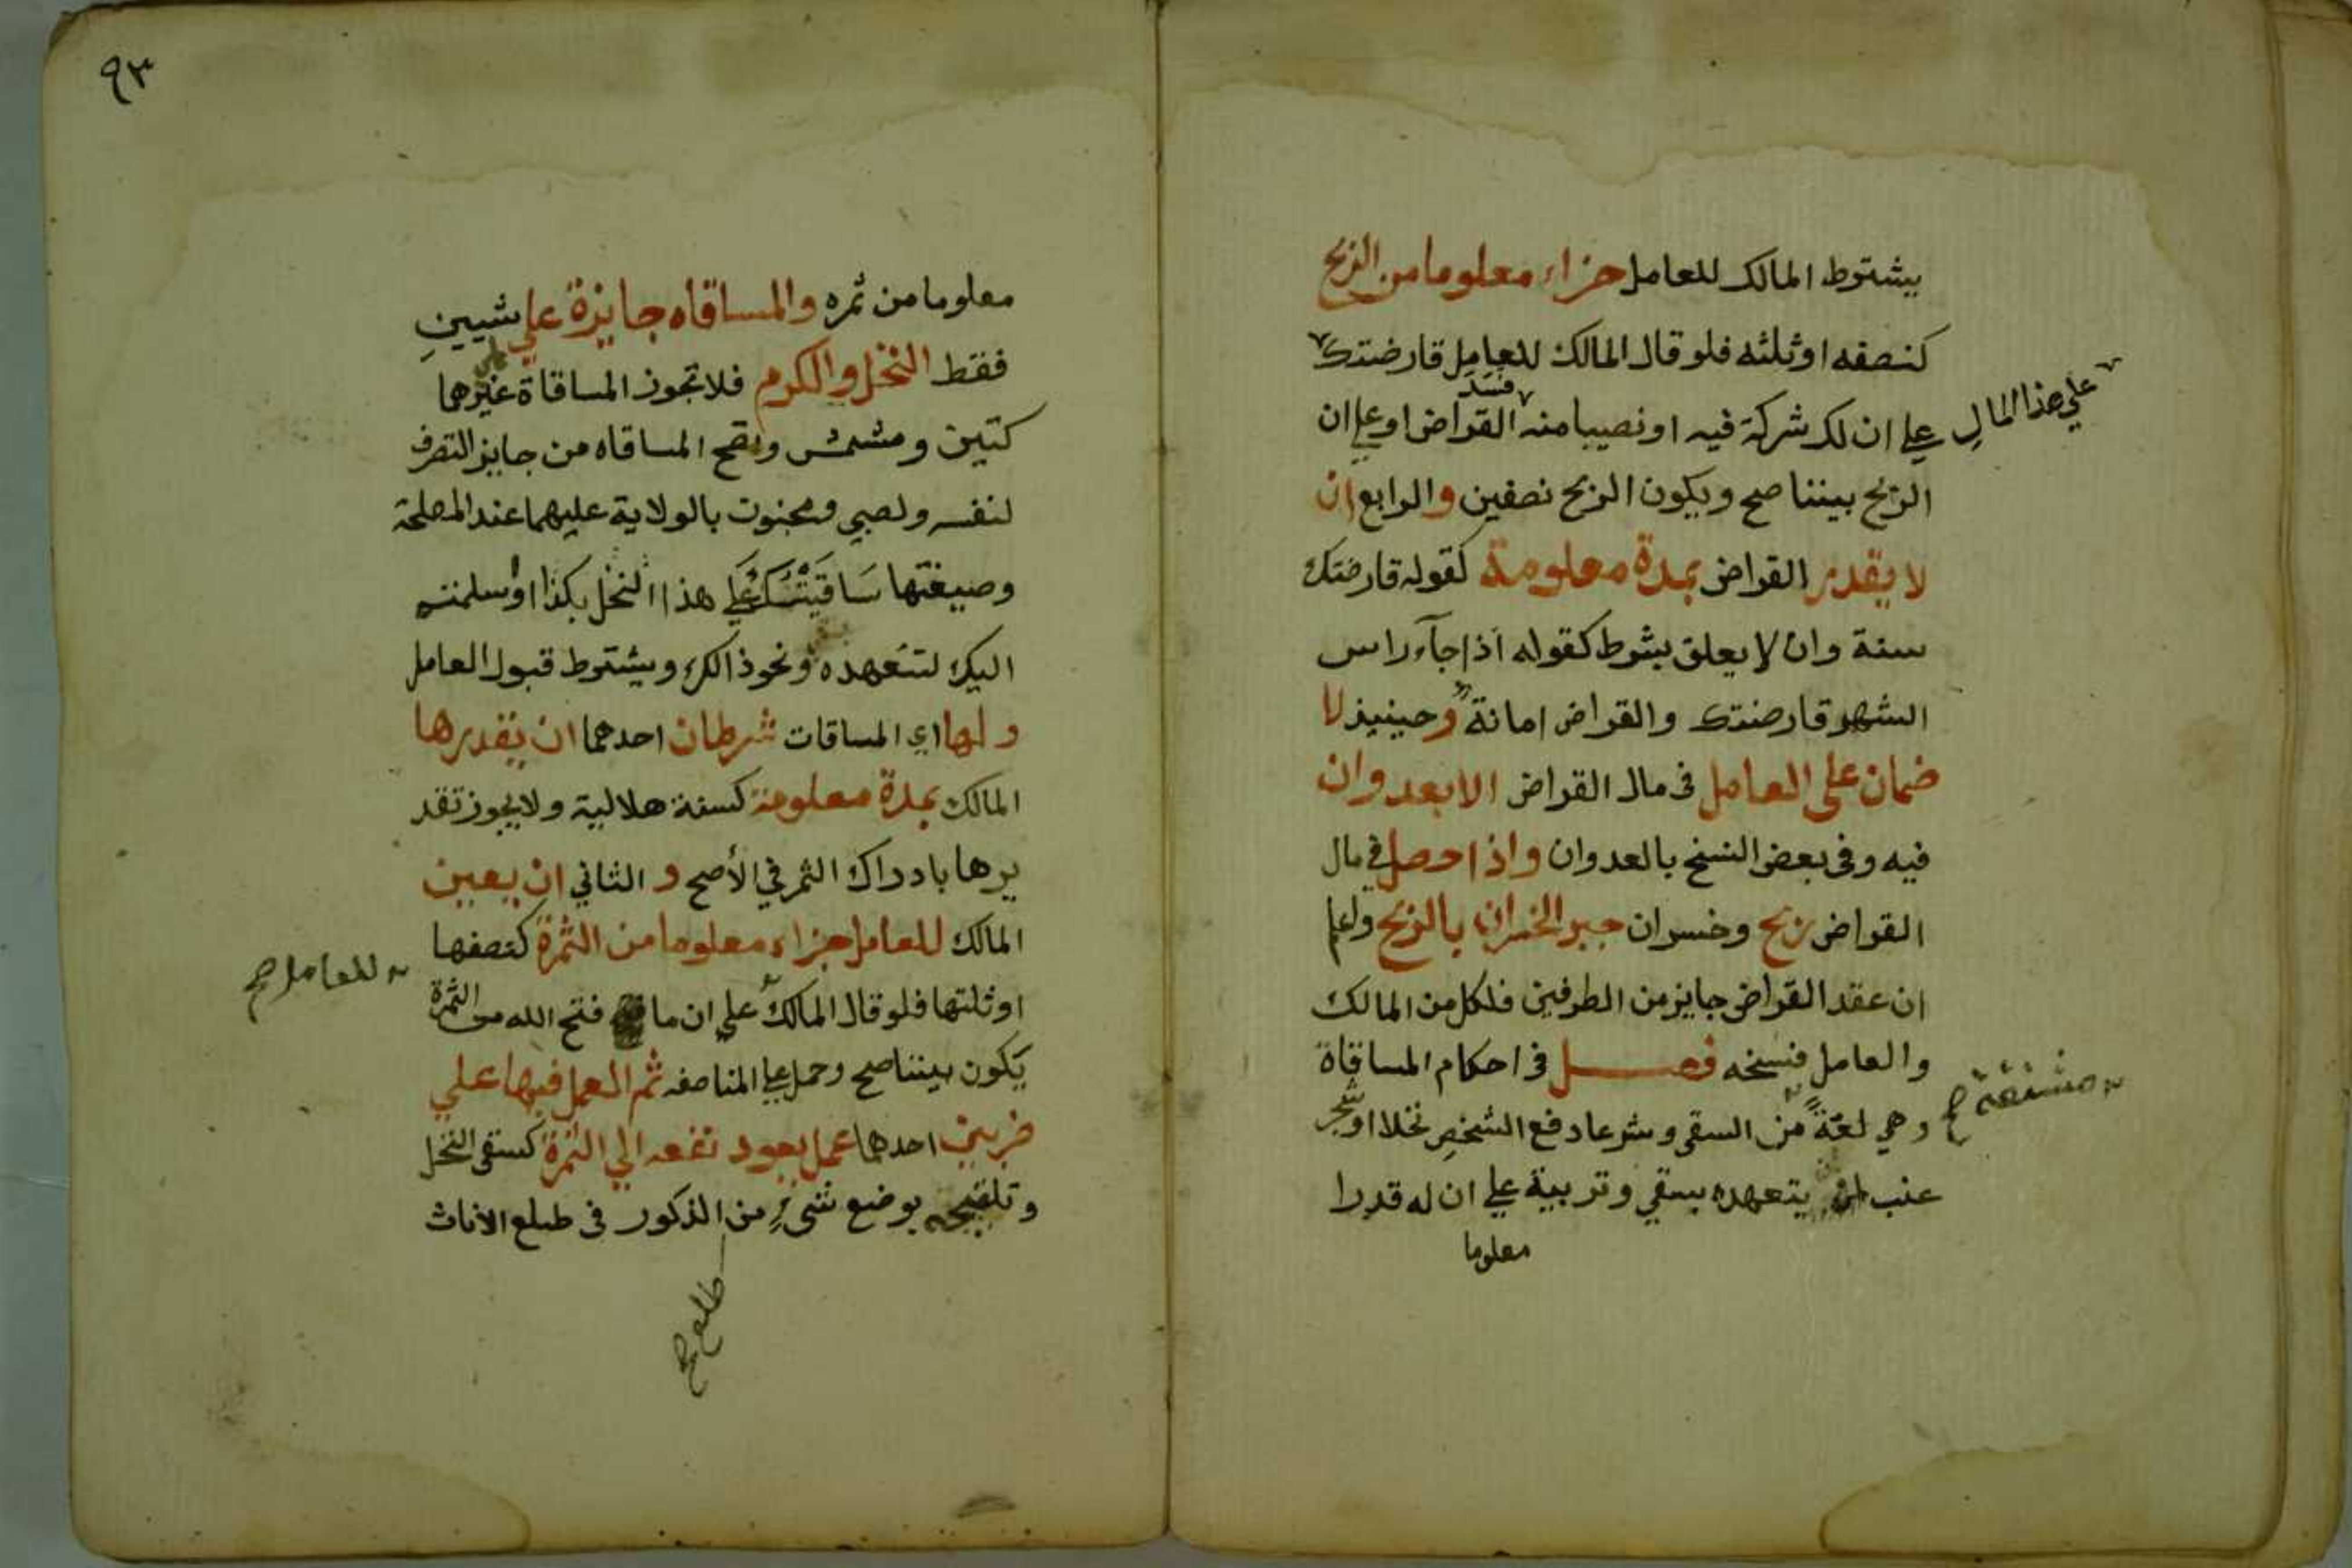 يشترط المالك للعامل جزاء معلوما من الربح
كنصفه او ثلثه فلو قال المالك للعامل قارضتك
على هذا المال
علي ان لك شركة فيه او نصيبا منه فسد القراض او علي ان
الربح بيننا صح ويكون الربح نصفين والرابع ان
لا يقدر القراض بمدة معلومة كقوله قارضتك
سنة وان لا يعلق بشرط كقوله اذا جآء راس
الشهر قارضتك والقراض امانة وحينيذ لا
ضمان على العامل في مال القراض الا بعدوان
فيه وفى بعض النسخ بالعدوان واذا حصل في مال
القراض ربح وخسران جبر الخسران بالربح واعلم
ان عقد القراض جايز من الطرفين فلكل من المالك
والعامل فسخه فصل في احكام المساقاة
وهي لغة من السقي وشرعا دفع الشخص نخلا او شجر
مشتقة صح
عنب لمن يتعهده بسقي وتربية علي ان له قدرا
معلوما
٩٣
معلوما من ثمره والمساقاه جايزة علي شيين
فقط النخل والكرم فلا تجوز المساقاة على غيرهما
كتين ومشمش وتصح المساقاه من جايز التصرف
لنفسه ولصبي ومجنون بالولاية عليهما عند المصلحة
وصيغتها سَاقَيْتُكَ عَلَي هذا النخل بكذا او سلمته
اليك لتتعهده ونحو ذالك ويشترط قبول العامل
ولها اي المساقات شرطان احدهما ان يقدرها
المالك بمدة معلومة كسنة هلالية ولا يجوز تقد
يرها بادراك الثمر في الأصح و الثاني ان يعين
المالك للعامل جزاء معلوما من الثمرة كنصفها
او ثلثها فلو قال المالك علي ان ما فتح الله من الثمرة
للعامل صح
يكون بيننا صح وحمل علي المناصفه ثم العمل فيها علي
ضربين احدهما عمل يعود نفعه الي الثمرة كسقي النخل
وتلقيحه بوضع شىء من الذكور في طلع الاناث
طلع صح